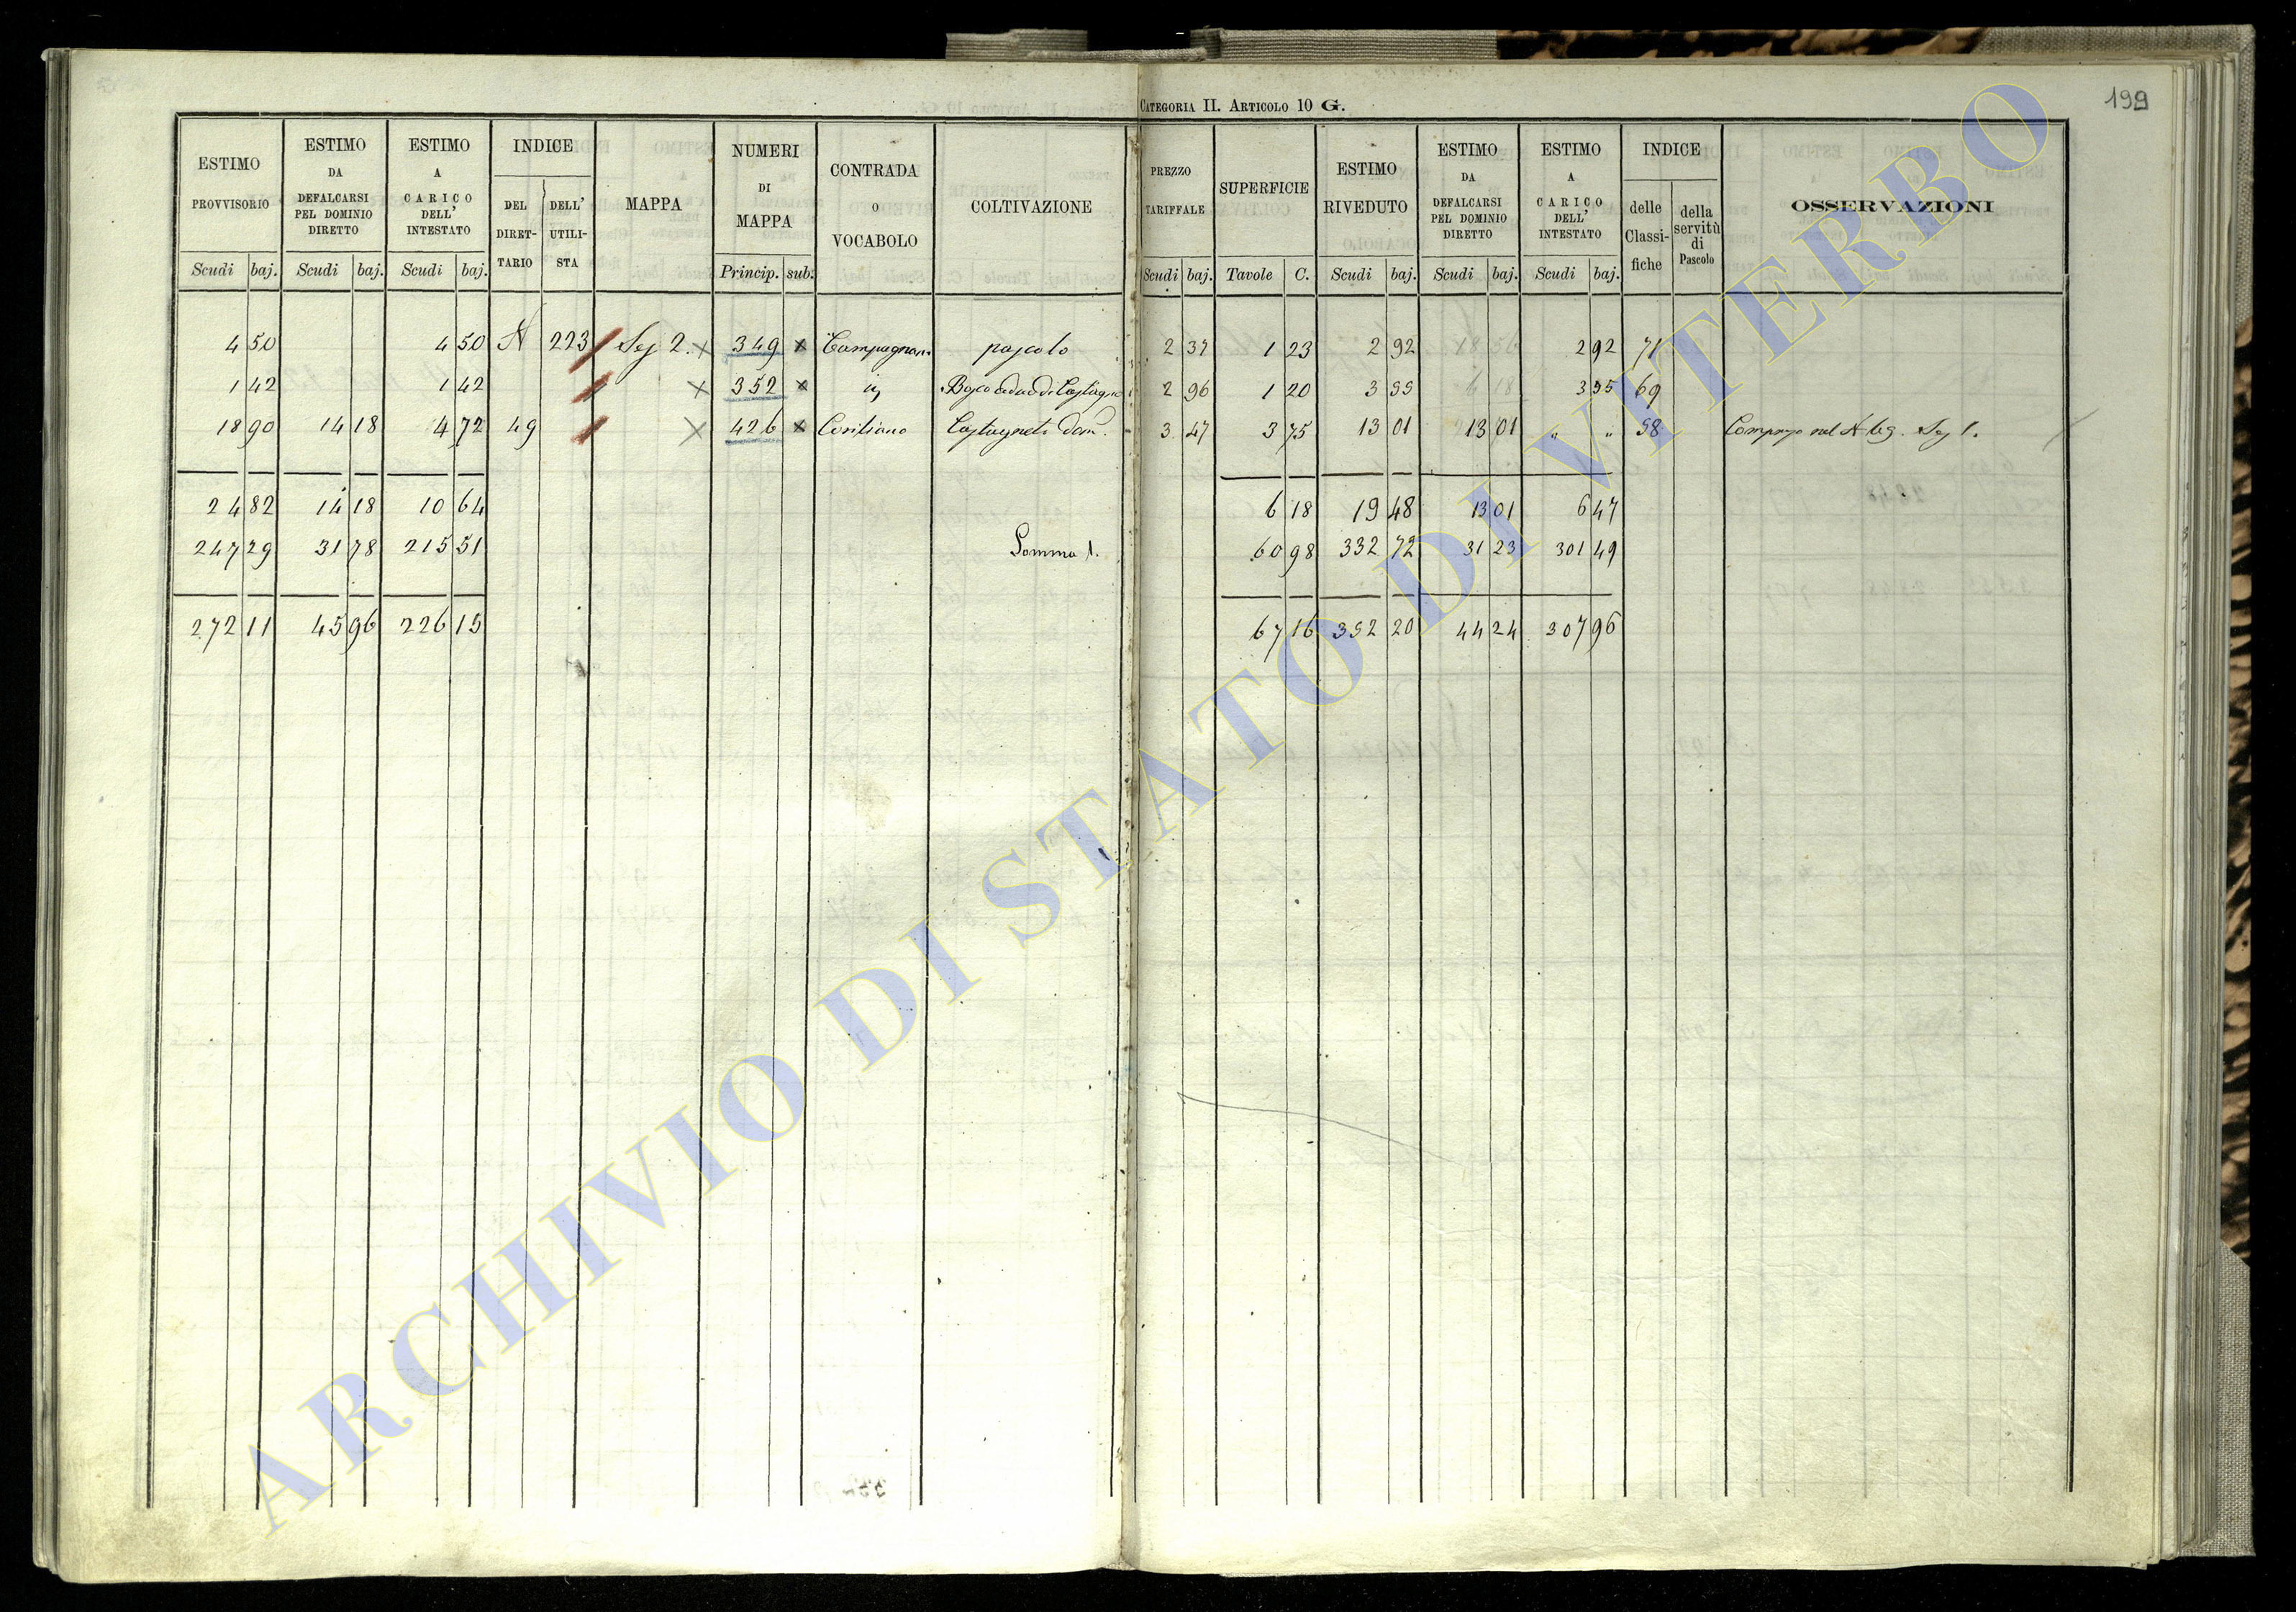 CATEGORIA II. ARTICOLO 10 G.
199
ESTIMO PROVVISORIO | ESTIMO DA DEFALCARSI PEL DOMINIO DIRETTO | ESTIMO A CARICO DELL' INTESTATO | INDICE | MAPPA | NUMERI DI MAPPA | CONTRADA O VOCABOLO | COLTIVAZIONE | PREZZO TARIFFALE | SUPERFICIE | ESTIMO RIVEDUTO | ESTIMO DA DEFALCARSI PEL DOMINIO DIRETTO | ESTIMO A CARICO DELL' INTESTATO | INDICE | OSSERVAZIONI
DEL DIRETTARIO | DELL' UTILISTA | delle Classifiche | della servitù di Pascolo
Scudi | baj. | Scudi | baj. | Scudi | baj. | Princip. | sub. | Scudi | baj. | Tavole | C. | Scudi | baj. | Scudi | baj. | Scudi | baj.
4 | 50 | 4 | 50 | N | 223 | Sez 2. | 349 | pascolo | 2 | 37 | 1 | 23 | 2 | 92 | 2 | 92 | 71
1 | 42 | 1 | 42 | 352 | Bosco ceduo di Castagno | 2 | 96 | 1 | 20 | 3 | 55 | 3 | 55 | 69
18 | 90 | 14 | 18 | 4 | 72 | 49 | 426 | Castagneto dom. | 3 | 47 | 3 | 75 | 13 | 01 | 13 | 01 | " | " | 58 | Compreso nel N Sez 1.
24 | 82 | 14 | 18 | 10 | 64 | 6 | 18 | 19 | 48 | 13 | 01 | 6 | 47
247 | 29 | 31 | 78 | 215 | 51 | Somma 1. | 60 | 98 | 332 | 72 | 31 | 23 | 301 | 49
272 | 11 | 45 | 96 | 226 | 15 | 67 | 16 | 352 | 20 | 44 | 24 | 307 | 96
ARCHIVIO DI STATO DI VITERBO